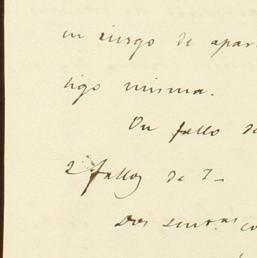 un riesgo de apar
tigo misma.
Un fallo de
2 fallos de 7-
Dos senras co